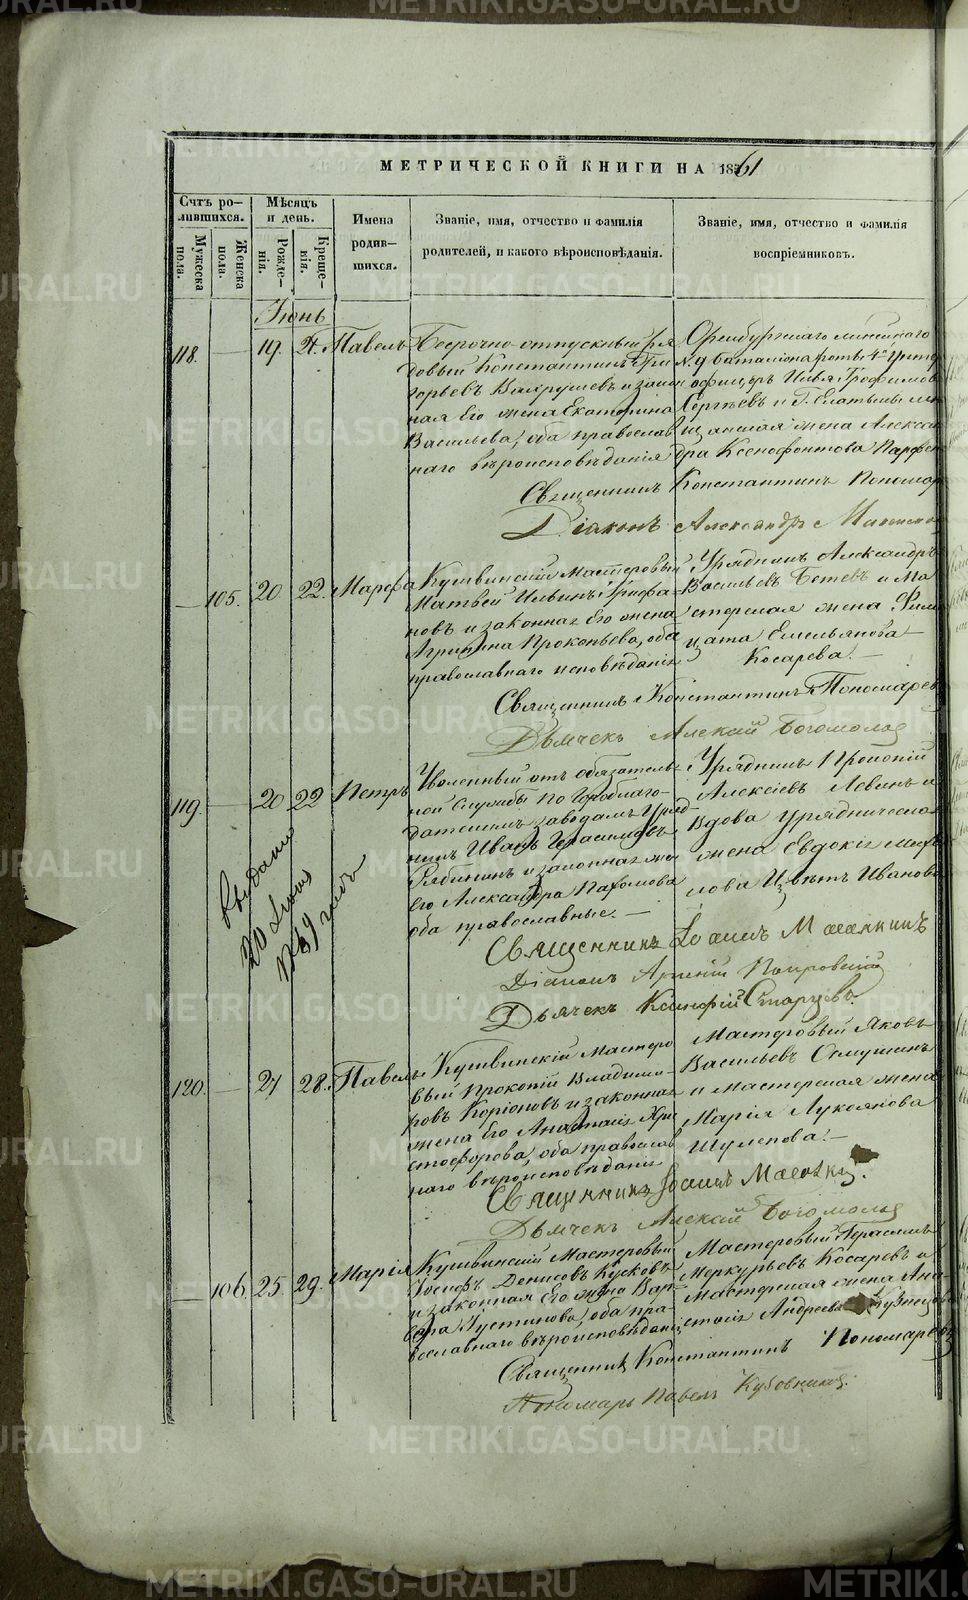 МЕТРИЧЕСКОЙ КНИГИ НА 1861
Счтъ ро-
лившихся.
Мужеска
пола.
Женска
пола.
Мѣсяцъ
и день.
Рожде-
нія.
Креще-
нія.
Имена
родив-
шихся.
Званіе, имя, отчество и фамилія
родителей, и какого вѣроисповѣданія.
Званіе, имя, отчество и фамилія
воспріемниковъ.
Іюнь
118. — 19. 21. Павелъ
Безсрочно-отпускный ря
довый Константинъ Гри
горьевъ Вахрушевъ и закон
ная Его жена Екатерина
Васильева, оба православ
наго вѣроисповѣданія
Оренбургскаго линейнаго
№ 9 баталіона роты 4й унтер
офицеръ Илья Трофимов
Сергѣевъ и Г.
жена Алексан
дра Ксенофонтова
Священникъ Константинъ Пономар
Діаконъ Александръ
— 105. 20 22. Марфа
Кушвинскій Мастеровый
Матвей Ильинъ Трифа-
новъ и законная Его жена
Агрипина Прокопьева, оба
православнаго исповѣданія
Урядникъ Александръ
Васильевъ Бетевъ и Ма
стерская жена
Емельянова
Косарева. —
Священникъ Константинъ Пономарев
Дьячекъ Алексий Богомолов
119. — 20 22 Петръ
Уволенный отъ обязатель-
ной Службы по Гороблаго-
датскимъ заводамъ Уряд
никъ Иванъ Герасимовъ
Рябининъ и законная же
Его Александра Пахомова
оба православные. —
Урядникъ Прокопій
Алексіевъ Левинъ и
Вдова Урядническа
жена Евдокія
Иванова
Выдано
20 Іюня
1879 года
Священникъ Іоаннъ
Діаконъ Арсеній Покровскій
Дьячекъ Ксенофій Старцевъ
120. — 27 28. Павелъ
Кушвинскій Мастеро
вый Прокопій Владими-
ровъ Коріоновъ и законная
жена Его Анастасія Хри
стофорова, оба православ
наго вѣроисповѣданія
Мастеровый Яковъ
Васильевъ
и мастерская жена
Марія Лукоянова
Шулепова. —
Священникъ Іоаннъ
Дьячекъ Алексий Богомолов
— 106. 25. 29. Марія
Кушвинскій Мастеровый
Іосифъ Денисовъ Кусковъ
и законная Его жена Вар-
вара Іустинова, оба пра-
вославнаго вѣроисповѣданія
Мастеровый Герасимъ
Меркурьевъ Косаревъ и
Мастерская жена Ана
стасія Андреева Кузнецова
Священникъ Константинъ Пономаревъ
Пономарь Павелъ
METRIKI.GASO-URAL.RU